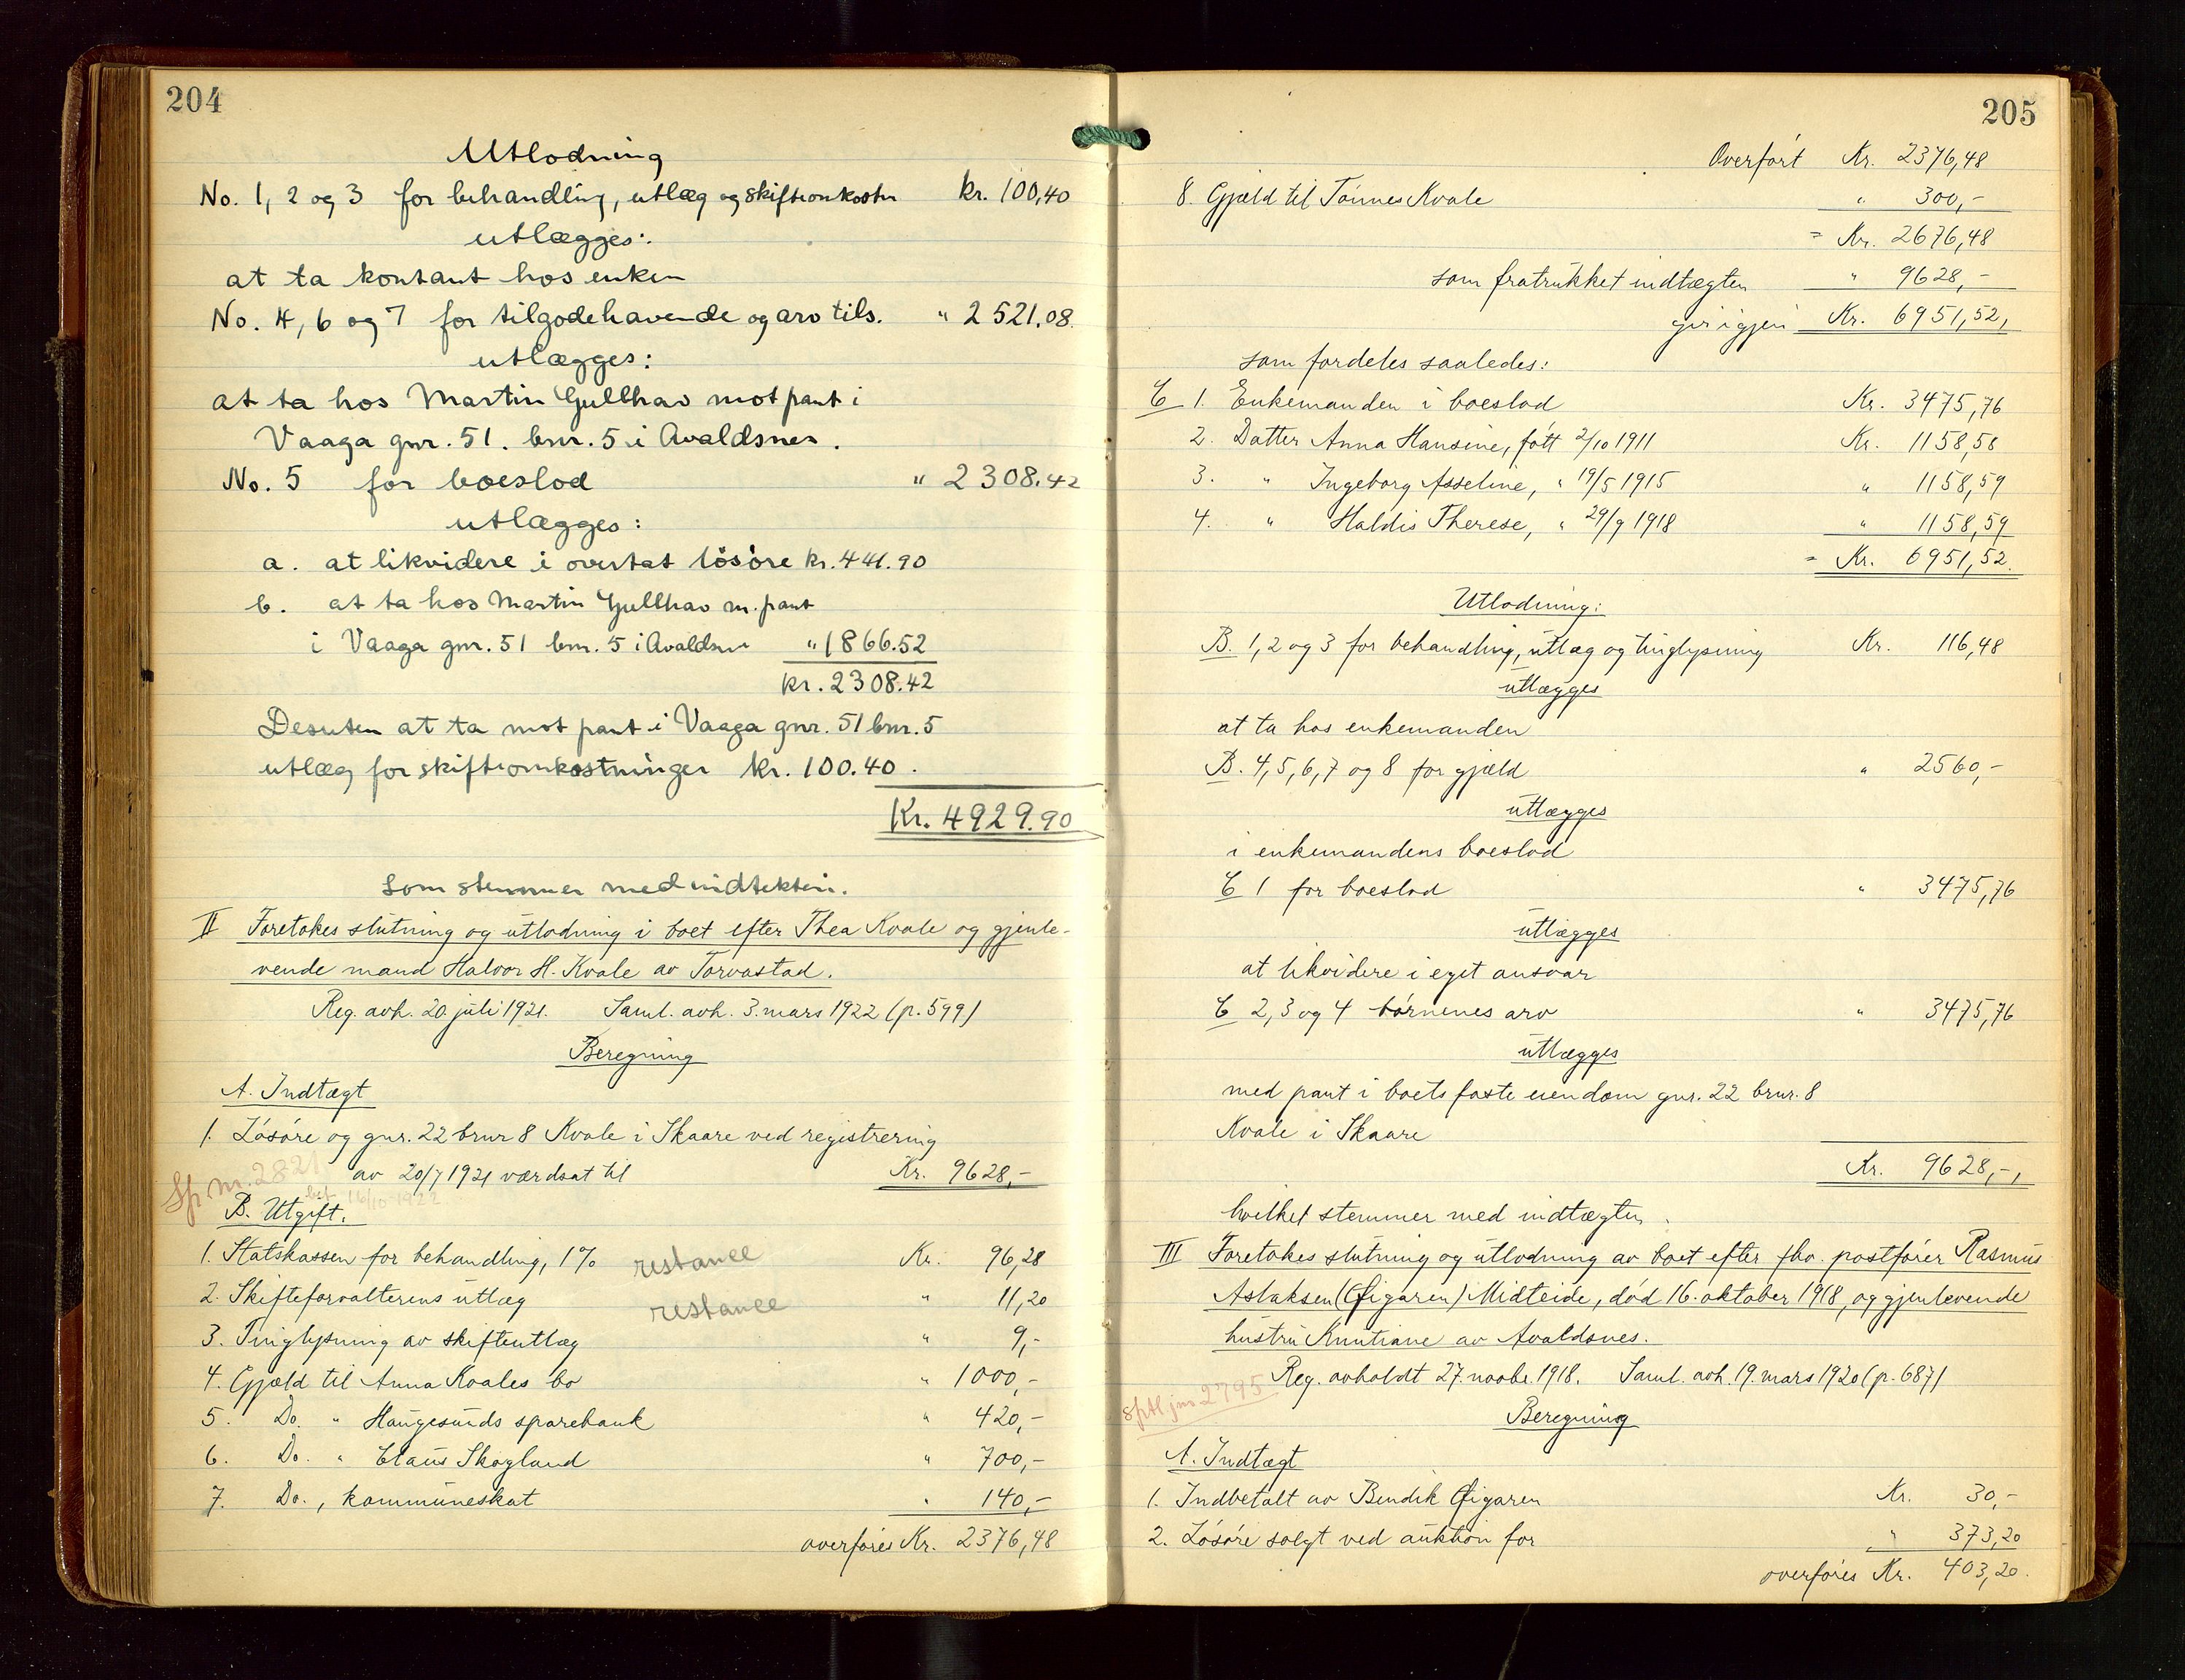 204
Utlodning
No. 1, 2 og 3 for behandling, utlæg og skifteomkostn kr. 100,40
utlægges:
at ta kontant hos enken
No. 4, 6 og 7 for tilgodehavende og arv tils. " 2521.08
utlægges:
at ta hos Martin Gullhav mot pant i
Vaaga gnr. 51. bnr. 5 i Avaldsnes.
No. 5 for boeslod " 2308.42
utlægges:
a. at likvidere i overtat løsøre kr. 441.90
b. at ta hos Martin Gullhav m. pant
i Vaaga gnr. 51 bnr. 5 i Avaldsnes " 1866.52
kr. 2308.42
Desuten at ta mot pant i Vaaga gnr. 51 bnr. 5
utlæg for skifteomkostninger kr. 100.40.
Kr. 4929.90
som stemmer med indtekten.
II Foretokes slutning og utlodning i boet efter Thea Kvale og gjenle-
vende mand Halvor H. Kvale av Torvastad.
Reg. avh. 20. juli 1921. Saml. avh. 3. mars 1922 (p. 599)
Beregning
A. Indtægt
1. Løsøre og gnr. 22 bnr 8 Kvale i Skaare ved registrering
av 20/7 1921 værdsat til Kr. 9628,-
Sp nr. 2821
bet. 16/10 1922
B. Utgift.
1. Statskassen for behandling, 1% restance Kr. 96,28
2. Skifteforvalterens utlæg restance " 11,20
3. Tinglysning av skifteutlæg " 9,-
4. Gjæld til Anna Kvales bo " 1000,-
5. Do. " Haugesunds sparebank " 420,-
6. Do. " Claus Skogland " 700,-
7. Do., kommuneskat " 140,-
overføres Kr. 2376,48
205
Overført Kr. 2376,48
8. Gjæld til Tønnes Kvale " 300,-
= Kr. 2676,48
som fratrukket indtægten " 9628,-
gir igjen Kr. 6951,52,
som fordeles saaledes:
C 1. Enkemanden i boeslod Kr. 3475,76
2. Datter Anna Hansine, født 2/10 1911 Kr. 1158,58
3. " Ingeborg Asseline, " 19/5 1915 " 1158,59
4. " Haldis Therese, " 29/9 1918 " 1158,59
= Kr. 6951,52.
Utlodning:
B. 1, 2 og 3 for behandling, utlæg og tinglysning Kr. 116,48
utlægges
at ta hos enkemanden
B. 4, 5, 6, 7 og 8 for gjæld " 2560,-
utlægges
i enkemandens boeslod
C 1 for boeslod " 3475,76
utlægges
at likvidere i eget ansvar
C 2, 3 og 4 børnenes arv " 3475,76
utlægges
med pant i boets faste eiendom gnr. 22 bnr. 8
Kvale i Skaare
Kr. 9628,-,
hvilket stemmer med indtægten.
III Foretokes slutning og utlodning av boet efter fhv. postfører Rasmus
Aslaksen (Øigaren) Midteide, død 16. oktober 1918, og gjenlevende
hustru Knutiane av Avaldsnes.
Reg. avholdt 27. novbr. 1918. Saml. avh. 19. mars 1920 (p. 687)
sptl jnr 2795
Beregning
A. Indtægt
1. Indbetalt av Bendik Øigaren Kr. 30,-
2. Løsøre solgt ved auktion for " 373,20
overføres Kr. 403,20.